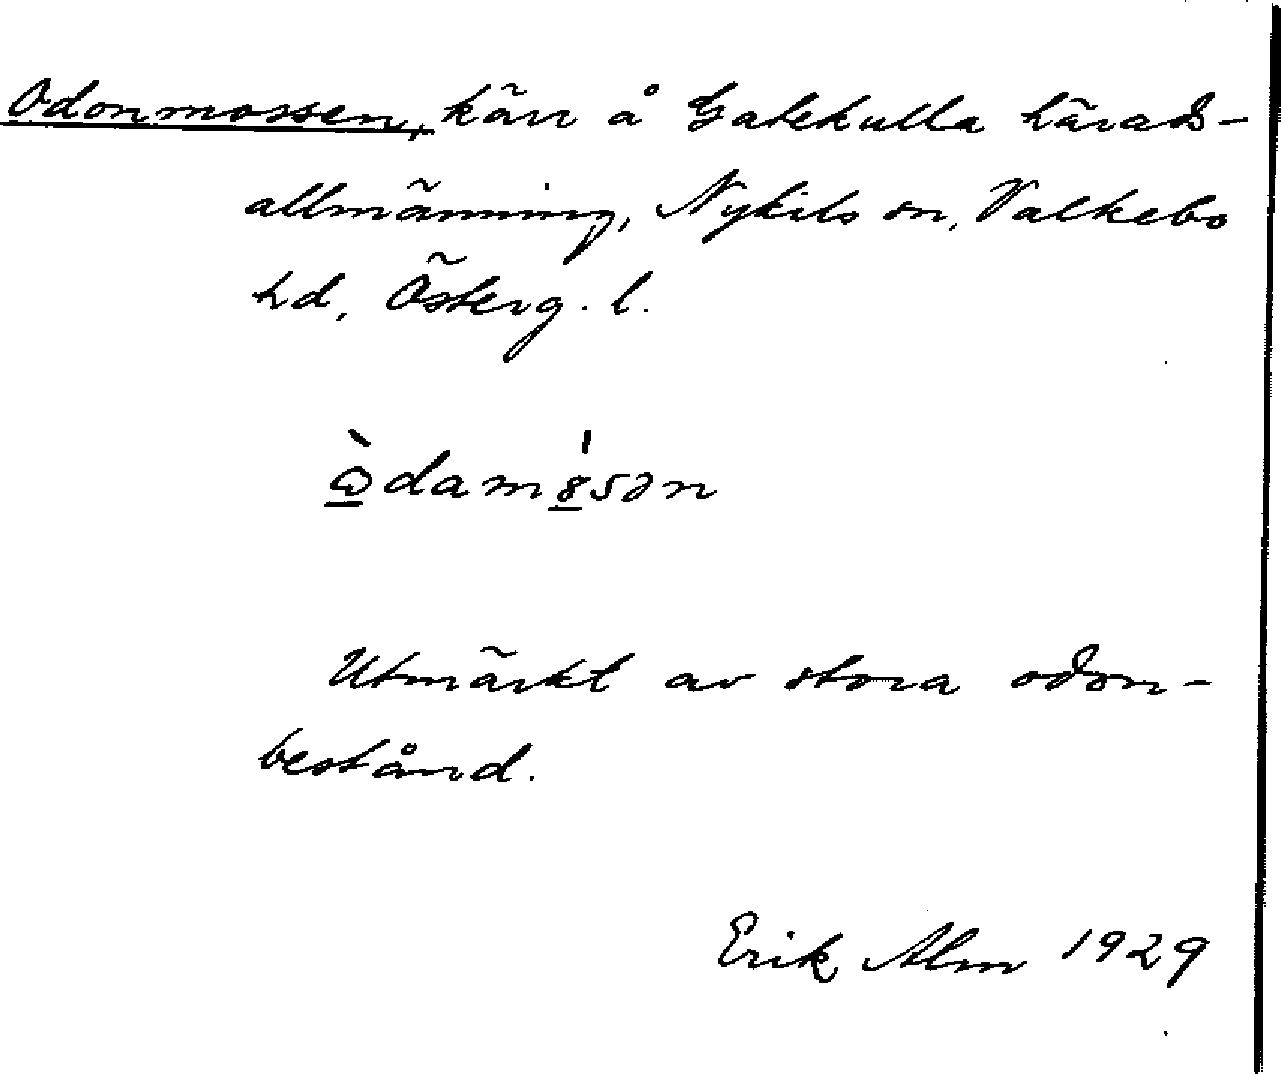 Odonmossen, kärr å Gatekulla härads-
allmänning, Nykils sn, Valkebo
hd, Österg. l.
Utmärkt av stora odon-
bestånd.
Erik Alm 1929